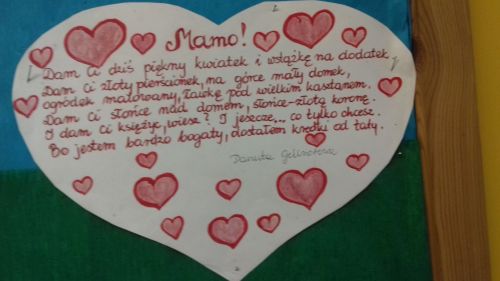 Mamo!
Dam Ci dziś piękny kwiatek i wstążkę na dodatek,
Dam Ci złoty pierścionek, na górce mały domek,
ogródek malowany, ławkę pod wielkim kasztanem.
Dam Ci słońce nad domem, słońce-złotą koronę.
I dam Ci księżyc, wiesz? I jeszcze... co tylko chcesz.
Bo jestem bardzo bogaty, dostałem kredki od taty.
Danuta